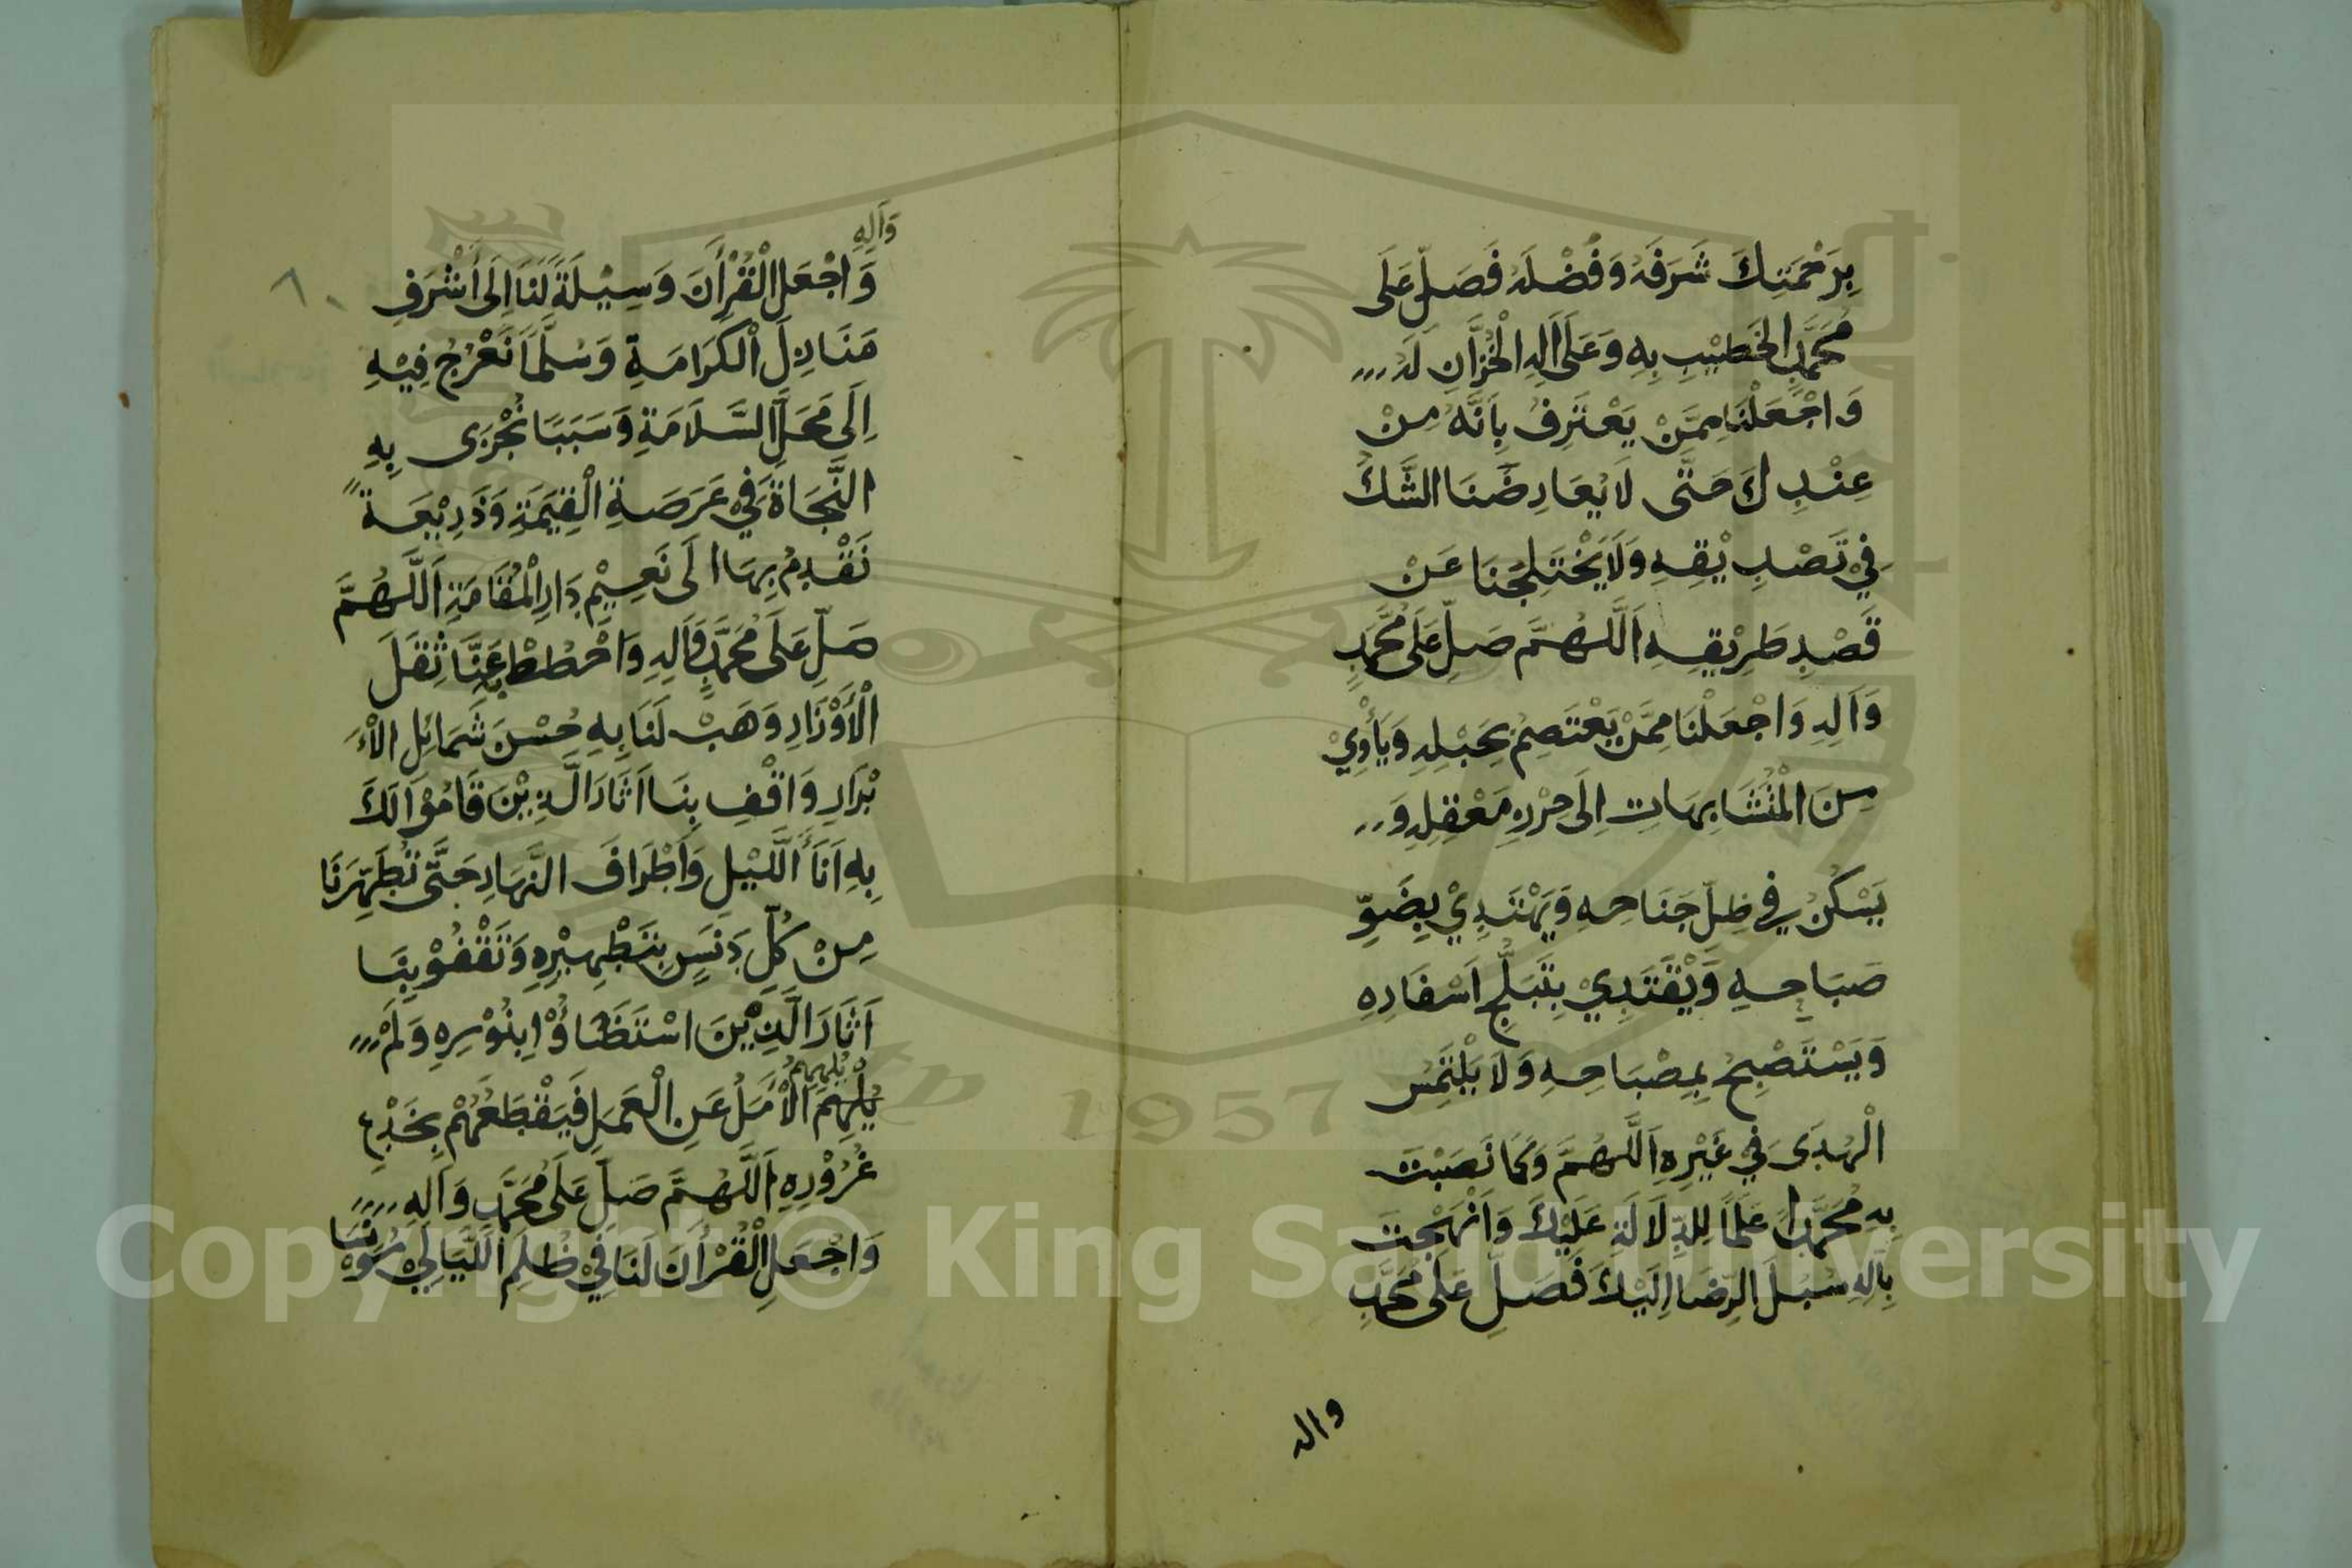 بِرَحْمَتِكَ شَرَفَهُ وَفَضْلَهُ فَصَلِّ عَلَى
مُحَمَّدٍ الخَطِيْبِ بِهِ وَعَلَى اَلِهِ الْخُزَّانِ لَهُ
وَاجْعَلْنَا مِمَّنْ يَعْتَرِفُ بِاَنَّهُ مِنْ
عِنْدِكَ حَتَّى لَا يُعَارِضَنَا الشَّكُّ
فِيْ تَصْدِيْقِهِ وَلَا يَخْتَلِجَنَا عَنْ
قَصْدِ طَرِيْقِهِ اَللَّهُمَّ صَلِّ عَلَى مُحَمَّدٍ
وَاَلِهِ وَاجْعَلْنَا مِمَّنْ يَعْتَصِمُ بِحَبْلِهِ وَيَأْوِيْ
مِنَ الْمُتَشَابِهَاتِ اِلَى حِرْزِ مَعْقِلِهِ وَ
يَسْكُنُ فِي ظِلِّ جَنَاحِهِ وَيَهْتَدِيْ بِضَوْءِ
صَبَاحِهِ وَيَقْتَدِيْ بِتَبَلُّجِ اَسْفَارِهِ
وَيَسْتَصْبِحُ بِمِصْبَاحِهِ وَلَا يَلْتَمِسُ
الْهُدَى فِي غَيْرِهِ اَللَّهُمَّ وَكَمَا نَصَبْتَ
بِهِ مُحَمَّدًا عَلَمًا لِلدِّلَالَةِ عَلَيْكَ وَاَنْهَجْتَ
بِاَلِهِ سُبُلَ الرِّضَا اِلَيْكَ فَصَلِّ عَلَى مُحَمَّدٍ
واله
وَاَلِهِ
وَاجْعَلِ الْقُرْأَنَ وَسِيْلَةً لَنَا اِلَى أَشْرَفِ
مَنَازِلِ الْكَرَامَةِ وَسُلَّمًا نَعْرُجُ فِيْهِ
اِلَى مَحَلِّ السَّلَامَةِ وَسَبَبًا نُجْزَى بِهِ
النَّجَاةَ فِيْ عَرَصَةِ الْقِيَمَةِ وَذَرِيْعَةً
نَقْدِمُ بِهَا اِلَى نَعِيْمِ دَارِ الْمُقَامَةِ اَللَّهُمَّ
صَلِّ عَلَى مُحَمَّدٍ وَاَلِهِ وَاحْطُطْ بِهِ عَنَّا ثِقَلَ
الْأَوْزَارِ وَهَبْ لَنَا بِهِ حُسْنَ شَمَائِلِ الْأَ
بْرَارِ وَاقْفِ بِنَا اَثَارَ الَّذِيْنَ قَامُوْا لَكَ
بِهِ اَنَأَ اللَّيْلِ وَاَطْرَافَ النَّهَارِ حَتَّى تُطَهِّرَنَا
مِنْ كُلِّ دَنَسٍ بِتَطْهِيْرِهِ وَتَقْفُوْ بِنَا
اَثَارَ الَّذِيْنَ اسْتَضَاؤُا بِنُوْرِهِ وَلَمْ
يُلْهِهِمُ
يُلْهِهِمُ الْأَمَلُ عَنِ الْعَمَلِ فَيَقْطَعَهُمْ بِخُدَعِ
غُرُوْرِهِ اَللَّهُمَّ صَلِّ عَلَى مُحَمَّدٍ وَاَلِهِ
وَاجْعَلِ الْقُرْأَنَ لَنَا فِيْ ظُلَمِ اللَّيَالِيْ مُوْنِسًا
Copyright © King Saud University
1957